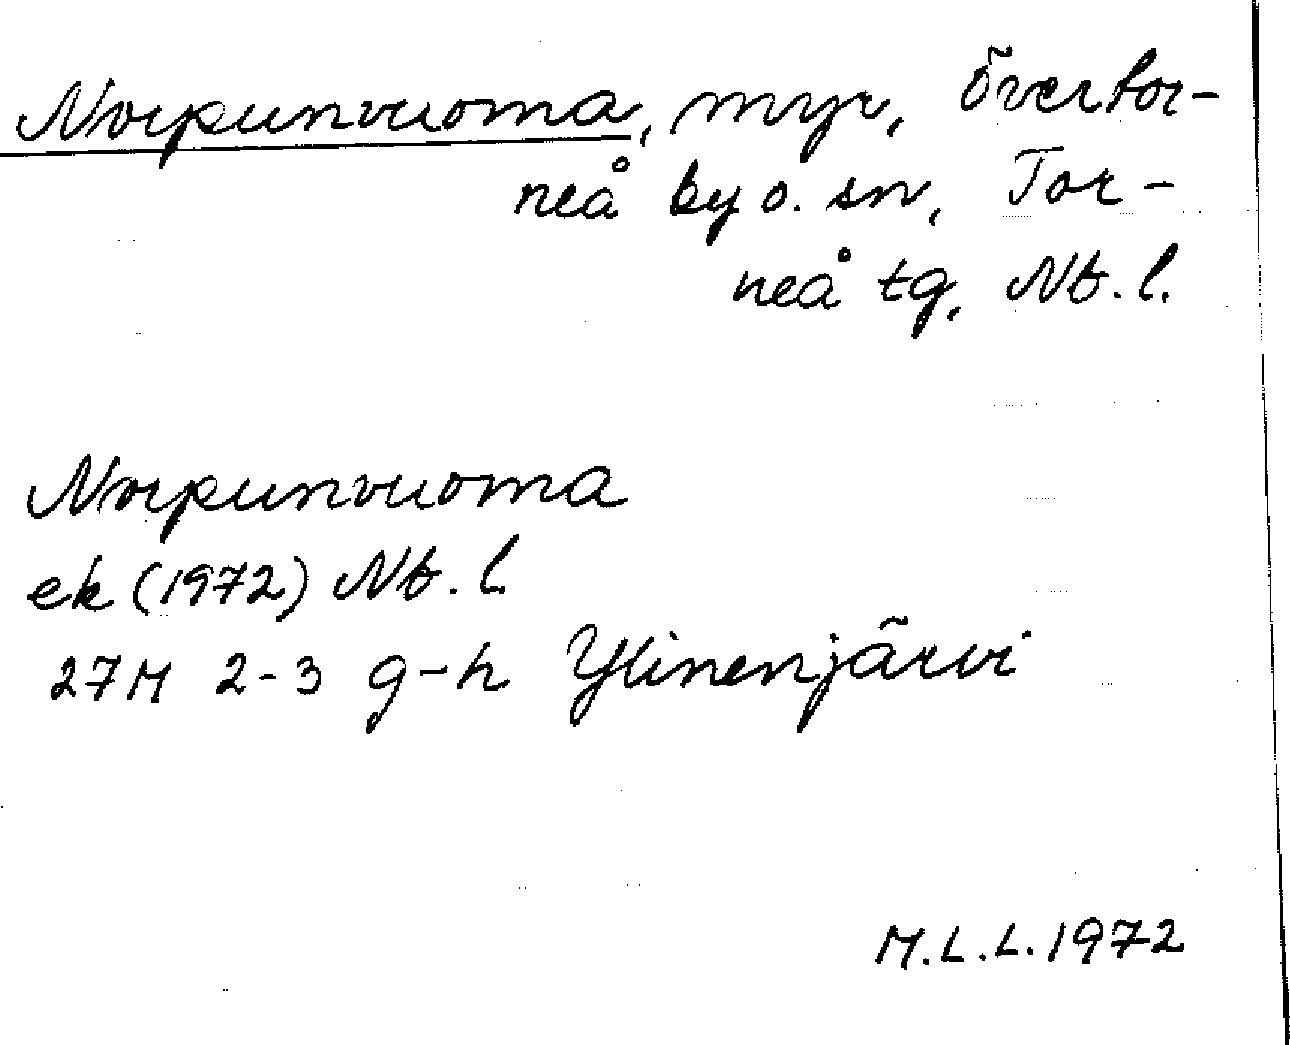 Norpunvuoma, myr, Övertor-
neå by o. sn, Tor-
neå tg, Nb. l.
Norpunvuoma
ek (1972) Nb. l.
27M 2-3 g-h Ylinenjärvi
M.L.L. 1972